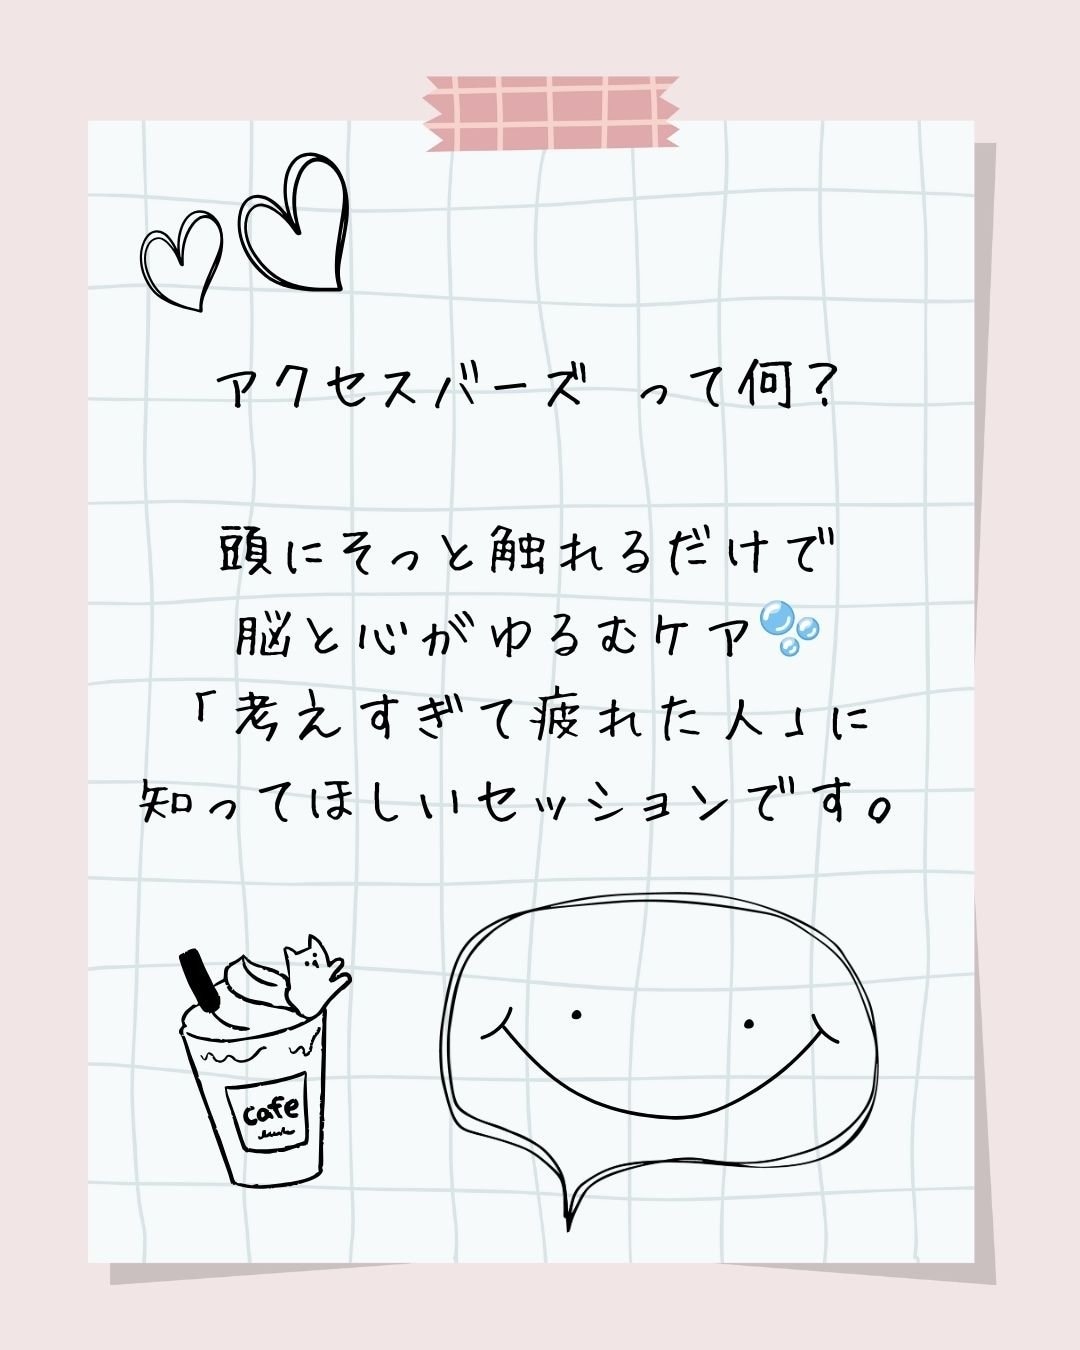 アクセスバーズ って何？
頭にそっと触れるだけで
脳と心がゆるむケア🫧
「考えすぎて疲れた人」に
知ってほしいセッションです。
cafe